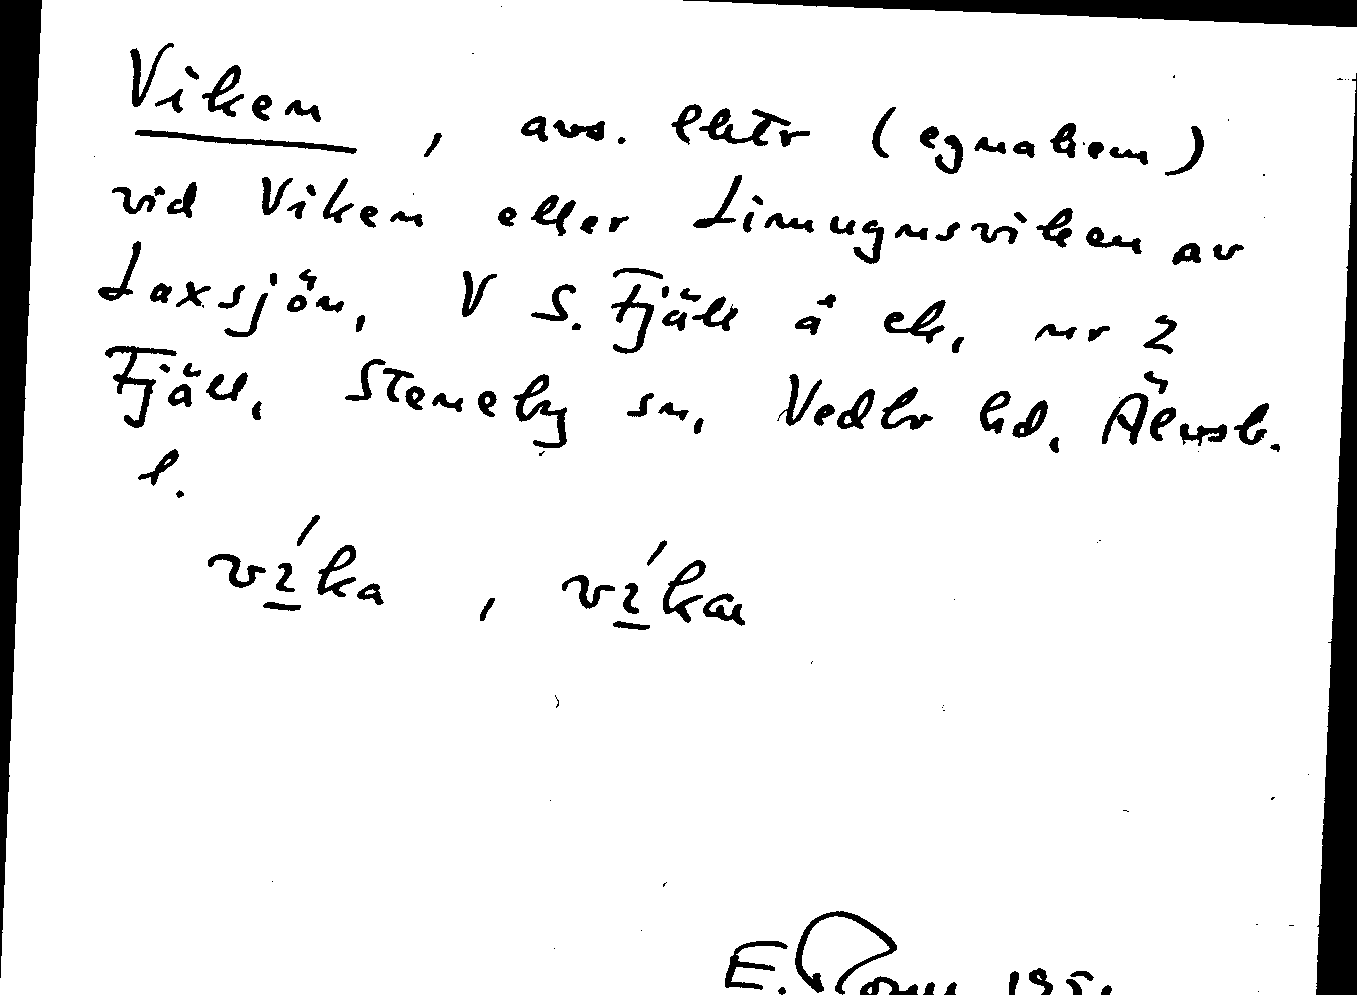 Viken, avs. lhtr (egnahem)
vid Viken eller Limugnsviken av
Laxsjön, V S. Fjäll å ek, nr 2
Fjäll, Steneby sn, Vedbo hd, Älvsb.
l.
ví̲ka, ví̲kan
E.